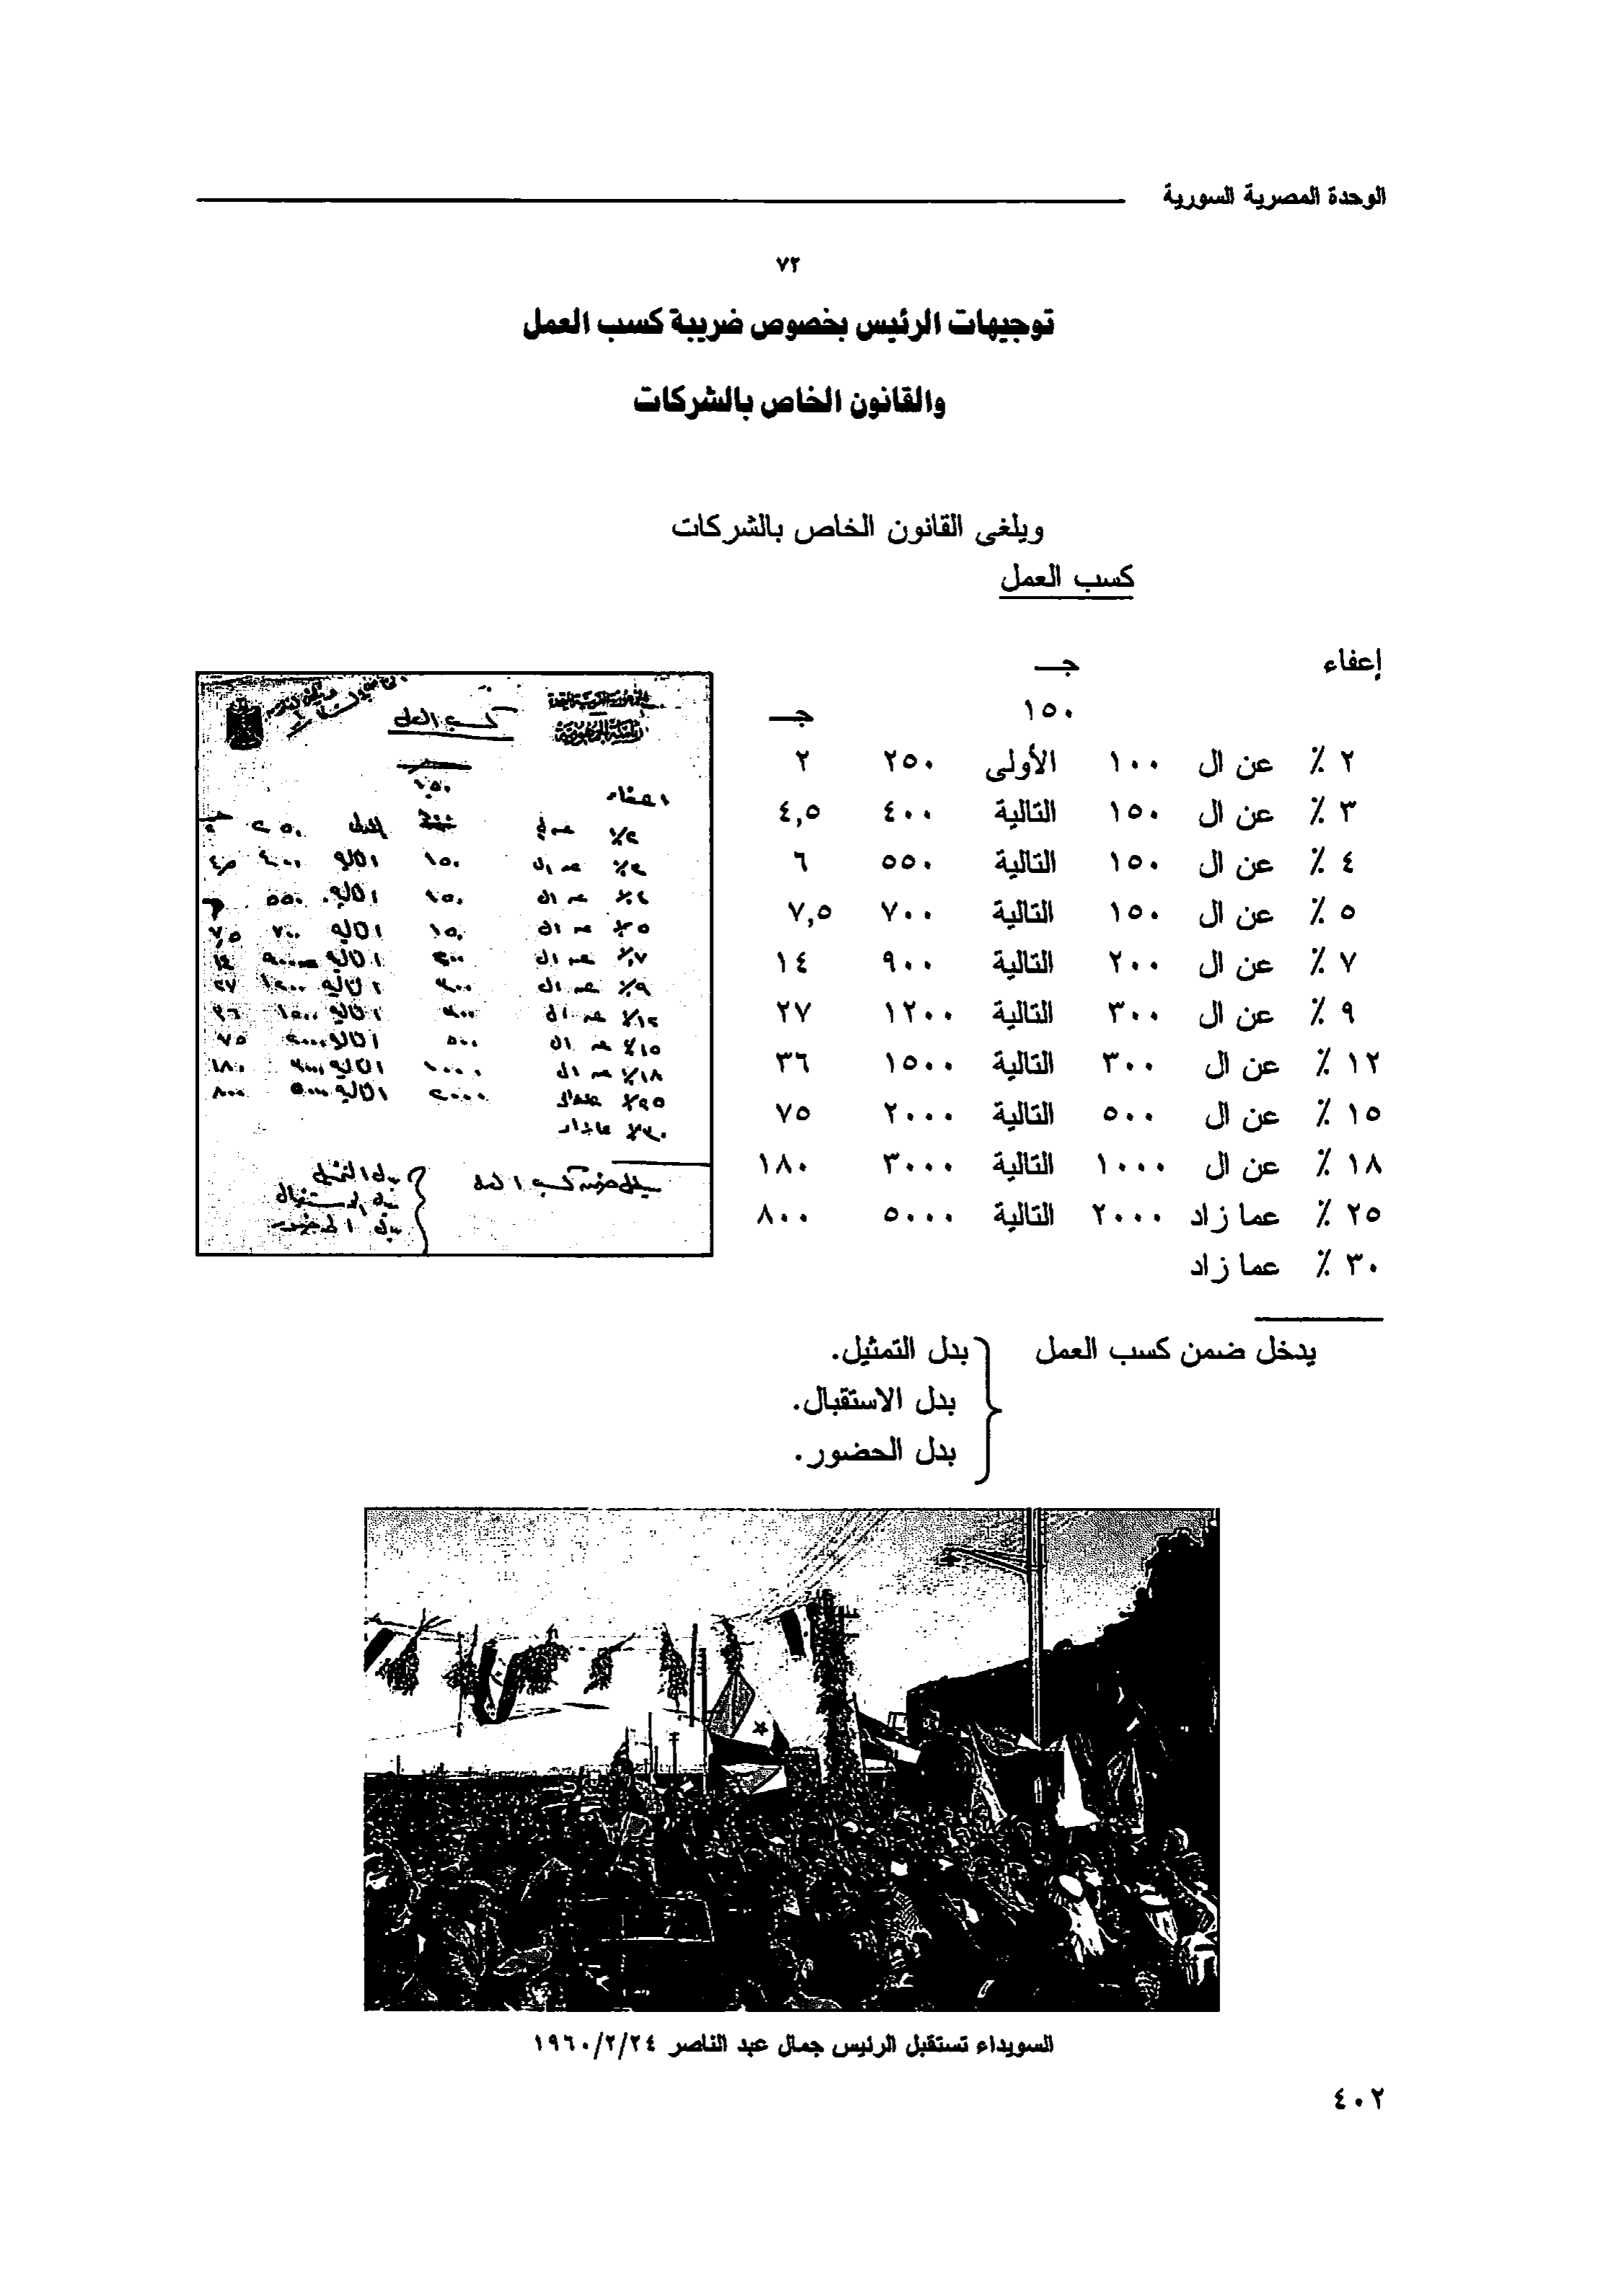 الوحدة المصرية السورية
٧٢
توجيهات الرئيس بخصوص ضريبة كسب العمل
والقانون الخاص بالشركات
ويلغى القانون الخاص بالشركات
كسب العمل
إعفاء جـ
١٥٠ جـ
٢ ٪ عن ال ١٠٠ الأولى ٢٥٠ ٢
٣ ٪ عن ال ١٥٠ التالية ٤٠٠ ٤,٥
٤ ٪ عن ال ١٥٠ التالية ٥٥٠ ٦
٥ ٪ عن ال ١٥٠ التالية ٧٠٠ ٧,٥
٧ ٪ عن ال ٢٠٠ التالية ٩٠٠ ١٤
٩ ٪ عن ال ٣٠٠ التالية ١٢٠٠ ٢٧
١٢ ٪ عن ال ٣٠٠ التالية ١٥٠٠ ٣٦
١٥ ٪ عن ال ٥٠٠ التالية ٢٠٠٠ ٧٥
١٨ ٪ عن ال ١٠٠٠ التالية ٣٠٠٠ ١٨٠
٢٥ ٪ عما زاد ٢٠٠٠ التالية ٥٠٠٠ ٨٠٠
٣٠ ٪ عما زاد
كسب العمل
١٥٠
اعفاء
يدخل ضمن كسب العمل
بدل التمثيل
بدل الاستقبال
بدل الحضور
يدخل ضمن كسب العمل بدل التمثيل.
بدل الاستقبال.
بدل الحضور.
السويداء تستقبل الرئيس جمال عبد الناصر ١٩٦٠/٢/٢٤
٤٠٢